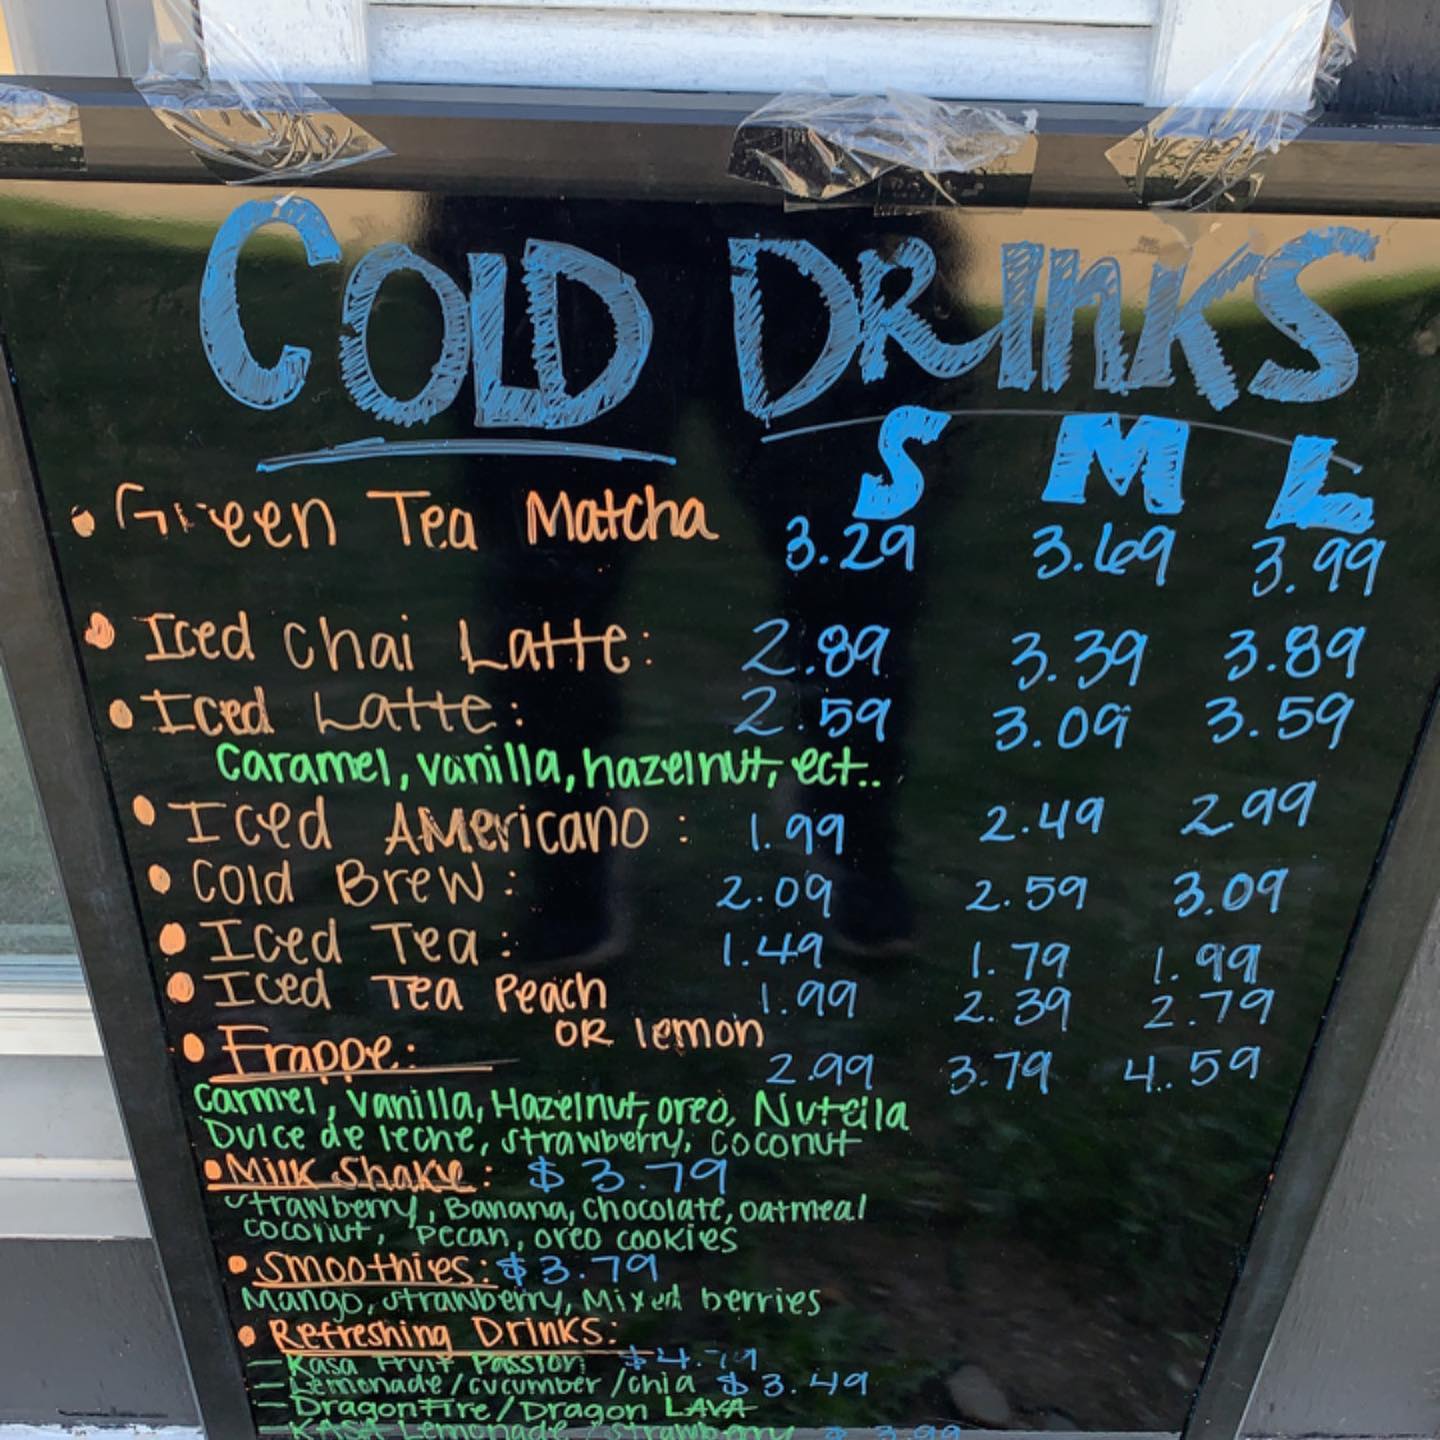 COLD DRINKS
S M L
• Green Tea Matcha 3.29 3.69 3.99
• Iced Chai Latte: 2.89 3.39 3.89
• Iced Latte: 2.59 3.09 3.59
Caramel, vanilla, hazelnut, ect..
• Iced AMericano: 1.99 2.49 2.99
• Cold Brew: 2.09 2.59 3.09
• Iced Tea: 1.49 1.79 1.99
• Iced Tea Peach 1.99 2.39 2.79
OR lemon
• Frappe: 2.99 3.79 4.59
Carmel, vanilla, Hazelnut, oreo, Nutella
Dulce de leche, strawberry, coconut
• Milk Shake: $3.79
strawberry, Banana, chocolate, oatmeal
coconut, pecan, oreo cookies
• Smoothies: $3.79
Mango, strawberry, Mixed berries
• Refreshing Drinks:
— Kasa Fruit Passion $4.79
— Lemonade/cucumber/chia $3.49
— DragonFire/Dragon LAVA
— KASA Lemonade strawberry $3.99